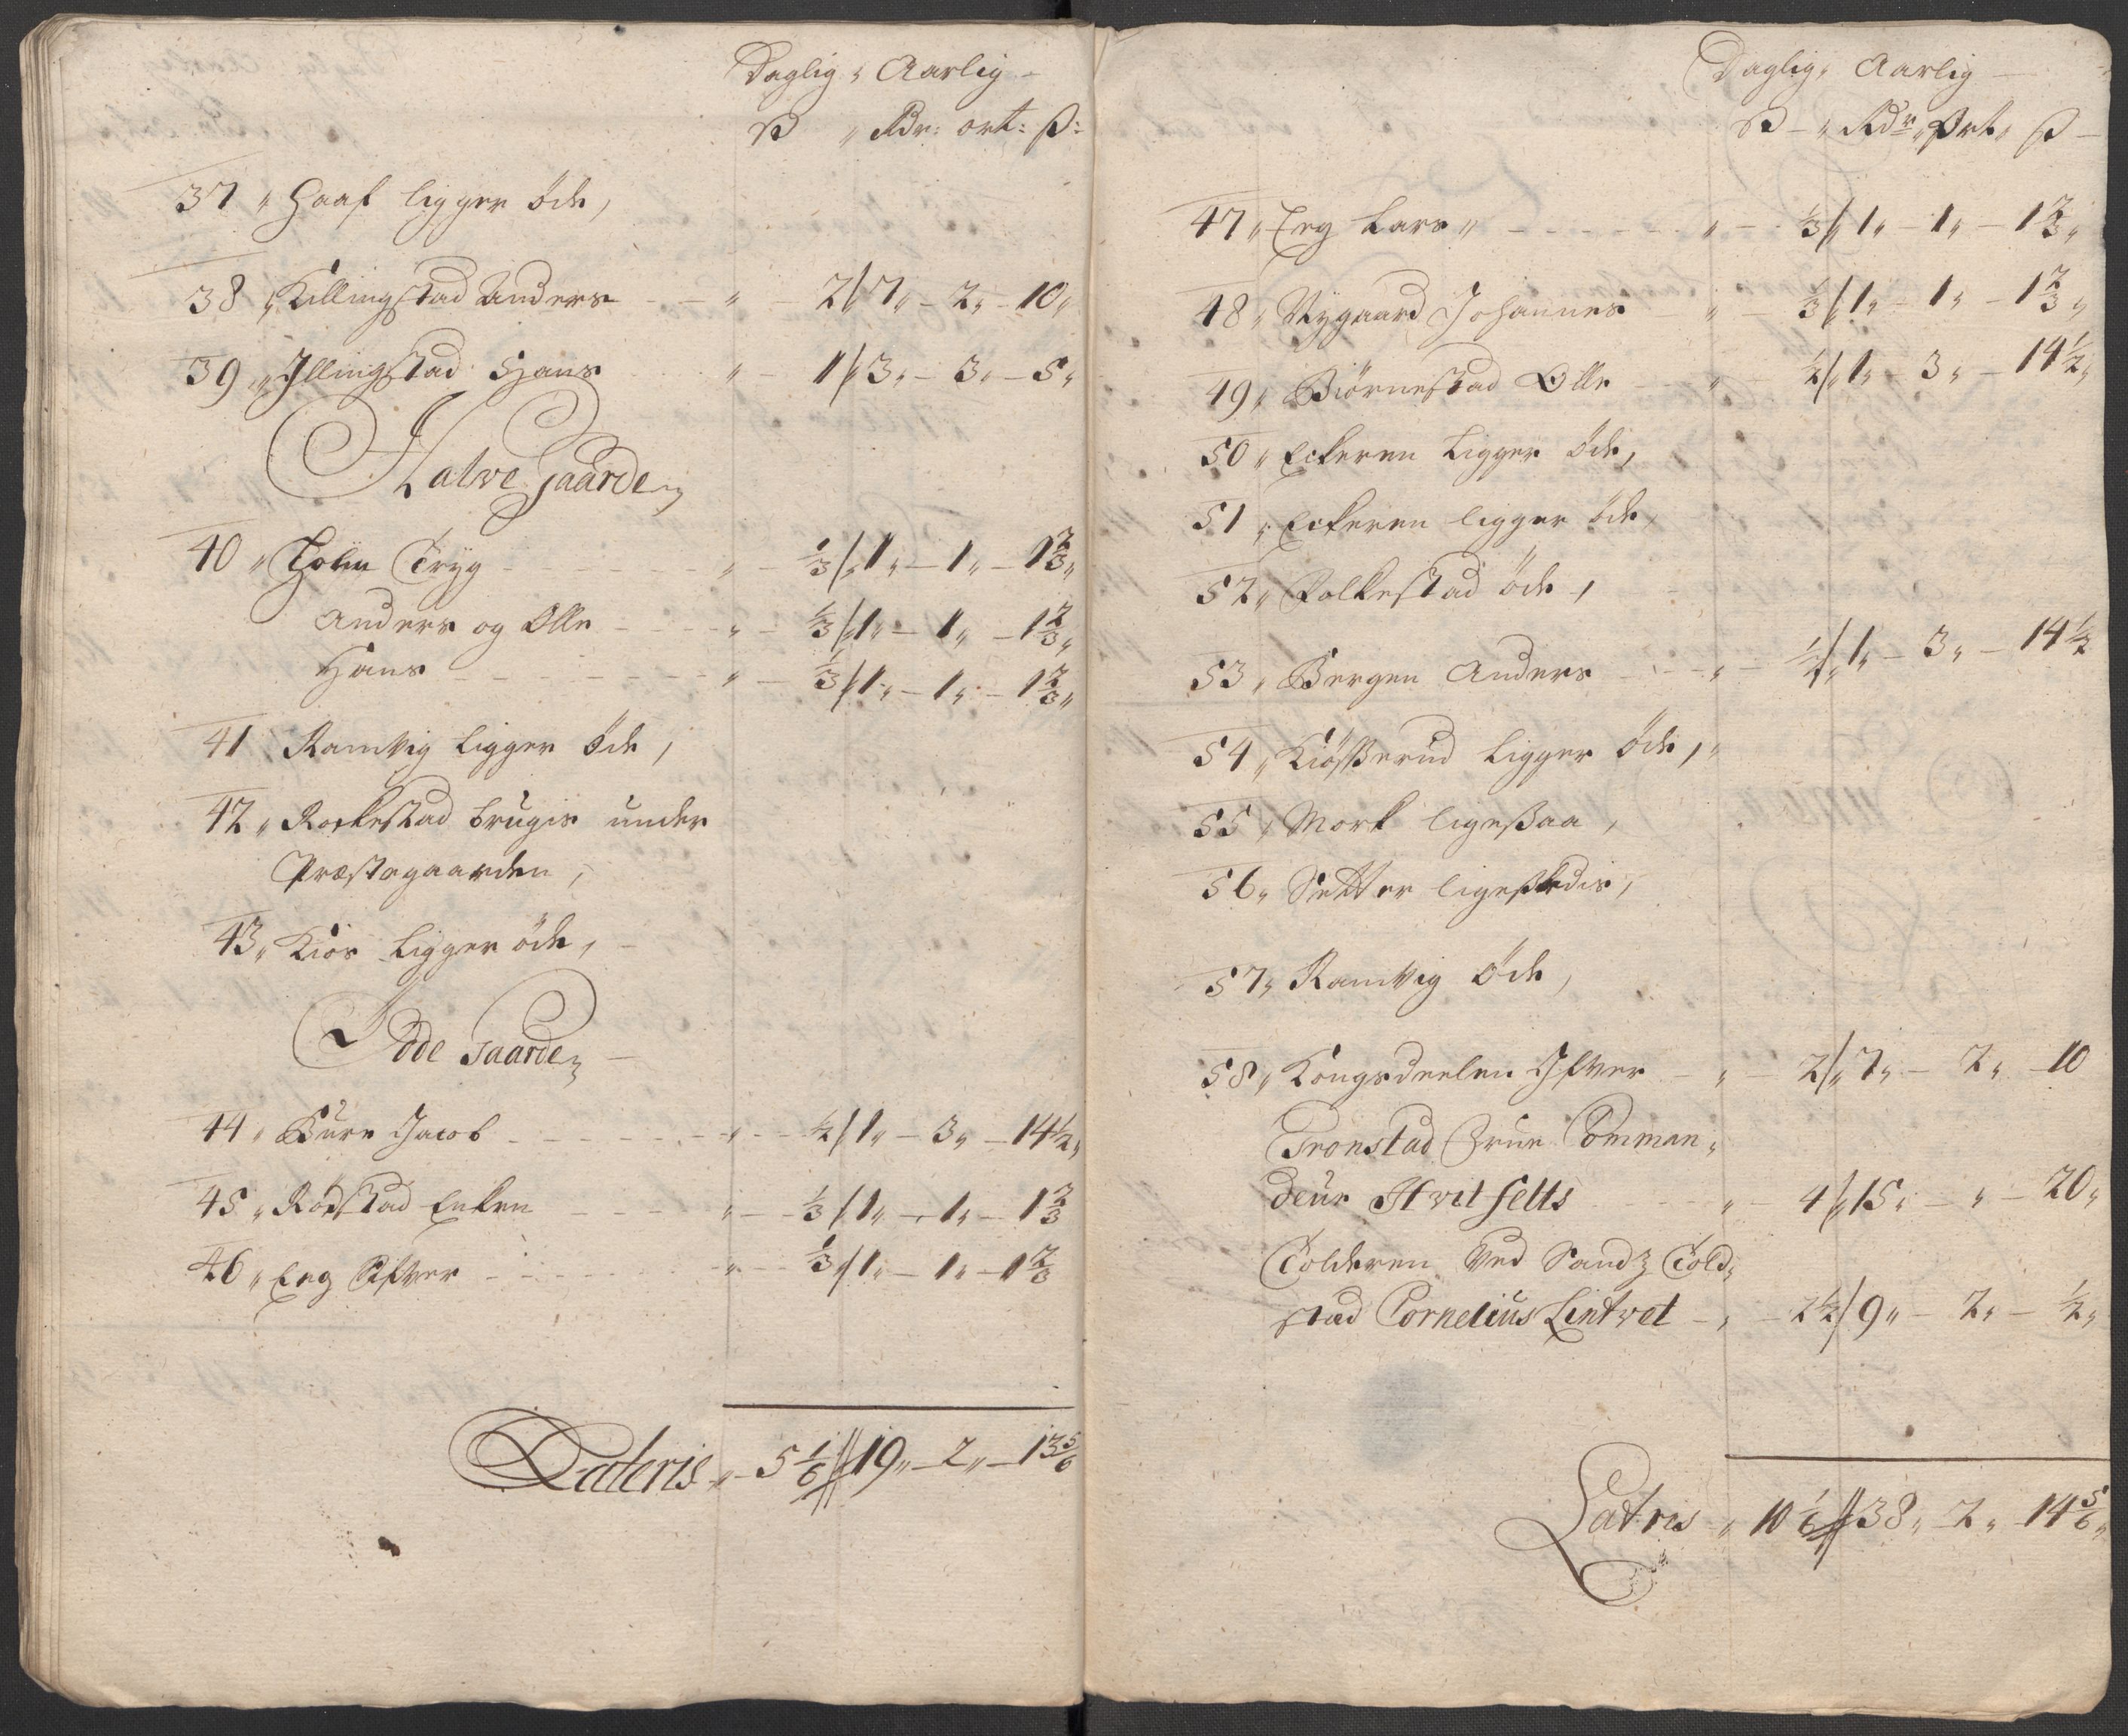 Daglig „ Aarlig –
ß „ Rdr: ort: ß:
37 „ Haaf ligger öde,
38 „ Killingstad Anders – „ 2 „ 7 „ – 2 „ – 10 „
39 „ Illingstad Hans „ – 1 „ 3 „ – 3 „ – 5 „
Halve Gaarder
40 „ Holm Tryg – „ – 1/3 „ 1 „ – 1 „ – 1 2/3 „
Anders og Olle – „ – 1/3 „ 1 „ – 1 „ – 1 2/3 „
Hans – „ – 1/3 „ 1 „ – 1 „ – 1 2/3 „
41 Ramvig ligger Öde,
42 „ Rockestad brugis under
Præstegaarden,
43 „ Kiös ligger öde, –
Ödde Gaarder –
44 „ Bure Jacob – „ – 1/2 „ 1 „ – 3 „ – 14 1/2 „
45 „ Rödstad Enken – „ – 1/3 „ 1 „ – 1 „ – 1 2/3
46 „ Eeg Sifver – „ – 1/3 „ 1 „ – 1 „ – 1 2/3
Lateris „ – 5 1/6 „ 19 „ – 2 „ – 13 5/6
Daglig „ Aarlig –
ß – „ Rdr „ Ort „ ß –
47 „ Eeg Lars „ – „ – 1/3 „ 1 „ – 1 „ – 1 2/3 „
48 „ Nygaard Johannes – „ 1/3 „ 1 „ – 1 „ – 1 2/3 „
49 „ Biörnestad Olle – „ – 1/2 „ 1 „ – 3 „ – 14 1/2 „
50 „ Eckeren ligger öde,
51 „ Eckeren ligger öde,
52 „ Folkestad öde,
53 „ Bergen Anders – „ – 1/2 „ 1 „ – 3 „ – 14 1/2
54 „ Kiößerud ligger öde, „
55 „ Mork ligeßaa,
56 „ Setter ligeßledis,
57 „ Ramvig öde,
58 „ Kongsdeelen Ifver – „ – 2 „ 7 „ – 2 „ – 10
Tronstad Frue Comman„
deur Hvitfelts – „ 4 „ 15 „ – „ – 20 „
Tolderen Ved Sandz Told„
stad Cornelius Lintvet – „ – 2 1/2 „ 9 „ – 2 „ – 1/2 „
Latris „ 10 1/6 „ 38 „ 2 „ 14 5/6 „